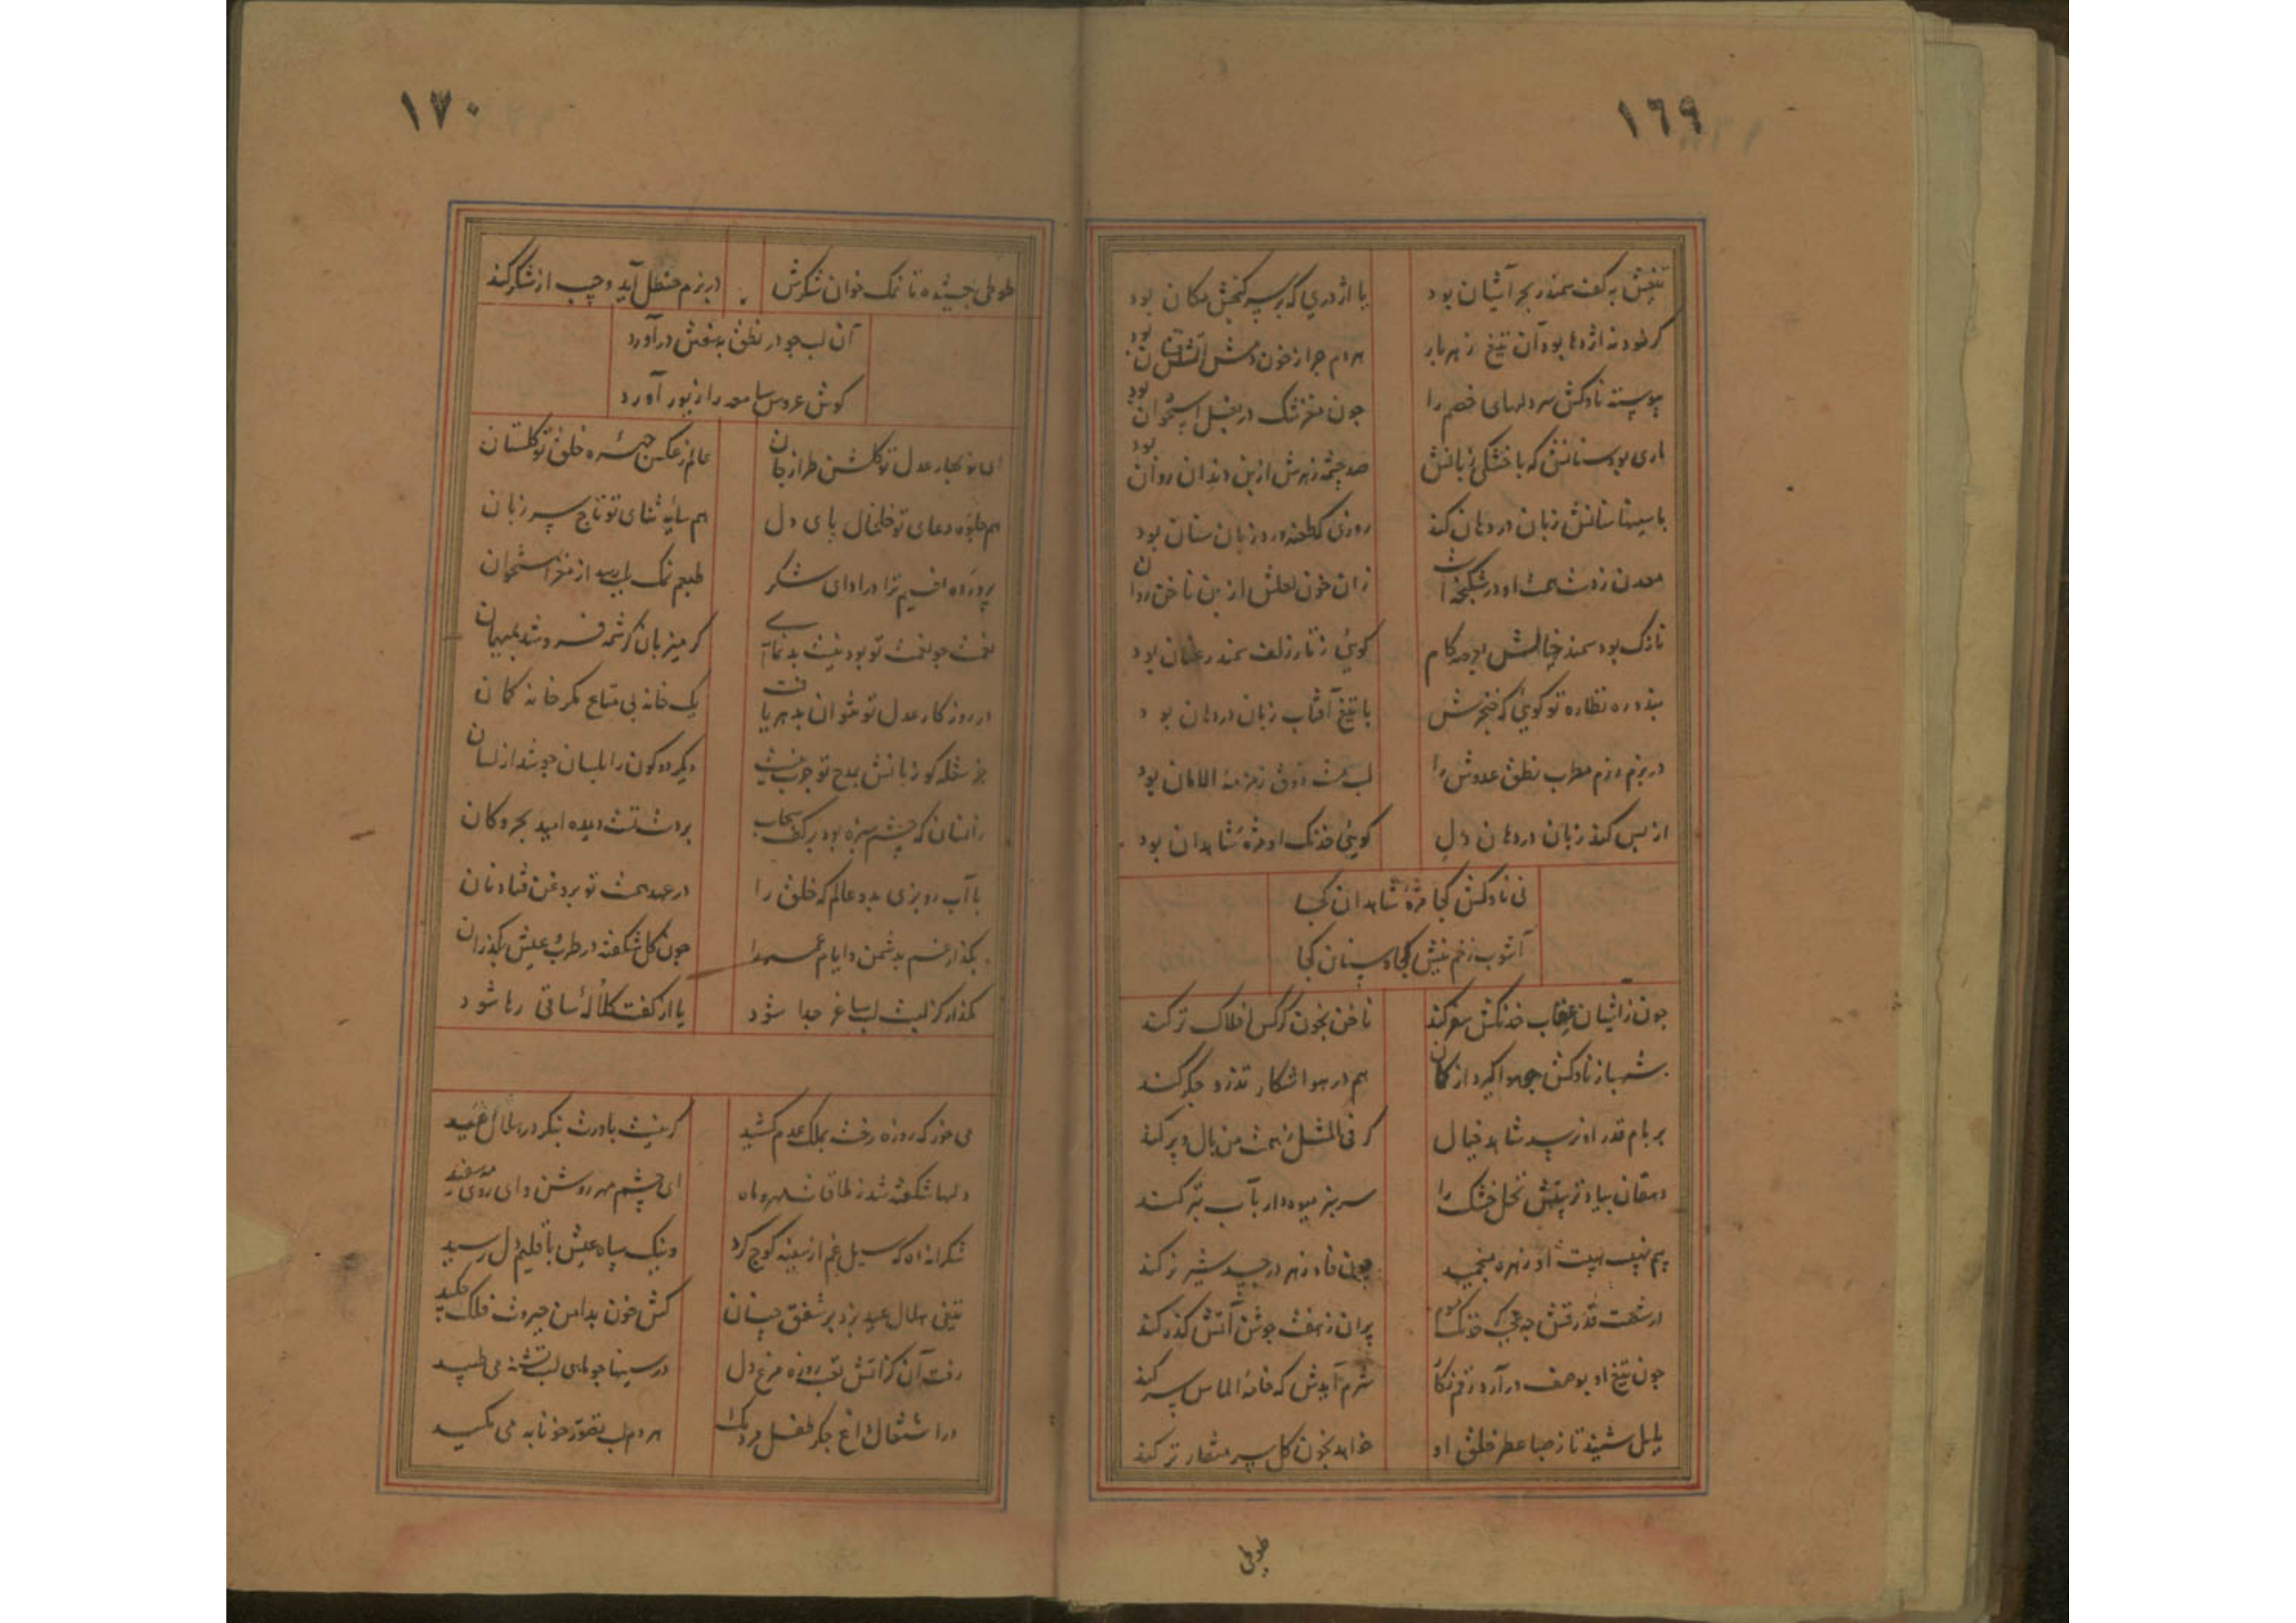 ١٦٩
تیغش به کف سمندر بحر آشیان بود
یا اژدری که بر سر گنجش مکان بود
گر خود نه اژدها بود آن تیغ زهربار
هر دم چرا ز خون دمش آتش فشان بود
پیوسته ناوکش سر دلهای خصم را
چون مغز تنگ در بغل استخوان بود
ماری بود سنانش که با خشکی زبانش
صد چشمه زهرش از بن دندان روان بود
با سینها سنانش زبان در دهان کند
روزی که طعنه ورد زبان سنان بود
معدن ز دست همت او در شکنجه است
زان خون لعلش از بن ناخن روان
نازک بود سمند خیالش
گویی ز تار زلف سمندر عنان بود
نظاره تو گویی که خنجرش
با تیغ آفتاب زبان در دهان بود
در بزم رزم مطرب نطق عدوش را
لب مست ذوق زمزمه الامان بود
از بس کند زبان در دهان دل
گویی خدنگ او مژه شاهدان بود
نی ناوکش کجا مژه شاهدان کجا
آشوب زخم نیش کجا و سنان کجا
چون ز آشیان عقاب خدنگش سفر کند
ناخن بخون کرکس افلاک تر کند
شهباز ناوکش چو هوا گیرد از کمان
هم در هوا شکار تذرو جگر کند
بر بام قدر او نرسد شاهد خیال
گر فی المثل ز همت من بال و پر کند
دهقان بیاد تربیتش نخل خشک را
سرسبز میوه دار بآب تبر کند
بیم نهیب هیبت او زهره
چون فاد زهر در جسد شیر نر کند
از شست قدرتش چو جهد خدنگ
پران ز هفت جوشن آتش گذر کند
چون تیغ او بوصف درآرد رقم نگار
شرم آیدش که خامه الماس سر کند
بلبل شنید تا ز صبا عطر خلق او
خواهد بخون گل سر منقار تر کند
طوطی
١٧٠
طوطی چشیده تا نمک خوان شکرش
در بزم حنظل آید و چسب از شکر کند
آن لب چو در نطق به سفتن درآورد
گوش عروس سامعه را زیور آورد
ای نوبهار عدل تو گلشن طراز جان
عالم ز عکس چهره خلق تو گلستان
هم جلوه دعای تو خلخال پای دل
هم سایه ثنای تو تاج سر زبان
پرورده ام ترا در ادای شکر
طبعم نمک از مغز استخوان
نعمت چو نعمت تو بود نیست بدنمائی
گر میزبان کرشمه فروشد بمیهمان
در روزگار عدل تو نتوان بدهر یافت
یک خانه بی متاع مگر خانه کمان
جز شعله کو زبانش بمدح تو چرب نیست
دیگر دو کون را بلسان
زانسان که چشم سبزه بود بر کف سحاب
بر دست تست دیده امید بحر و کان
با آب رو بزی بدو عالم که خلق را
در عهد همت تو
بگذار غم بدشمن و ایام عمر را
چون گل شکفته در طرب عیش بگذران
مگذار کز لبت لب ساغر جدا شود
یا از کفت کلاله ساقی رها شود
می خور که روزه رخت بملک عدم کشید
گر نیست باورت بنگر در هلال عید
دلها شکفته شد ز ملاقات مهر و ماه
ای چشم مهر روشن و ای روی مه سفید
شکرانه آه که سیل غم از سینه کوچ کرد
وینک سپاه عیش باقلیم دل رسید
تیغی هلال عید بزد بر شفق چنان
کش خون بدامن جبروت فلک چکید
رفت آن کز آتش تب روزه مرغ دل
در سینها چو ماهی لب تشنه می طپید
در اشتعال داغ جگر طفل مردمک
هر دم لب تصور خونابه می مکید